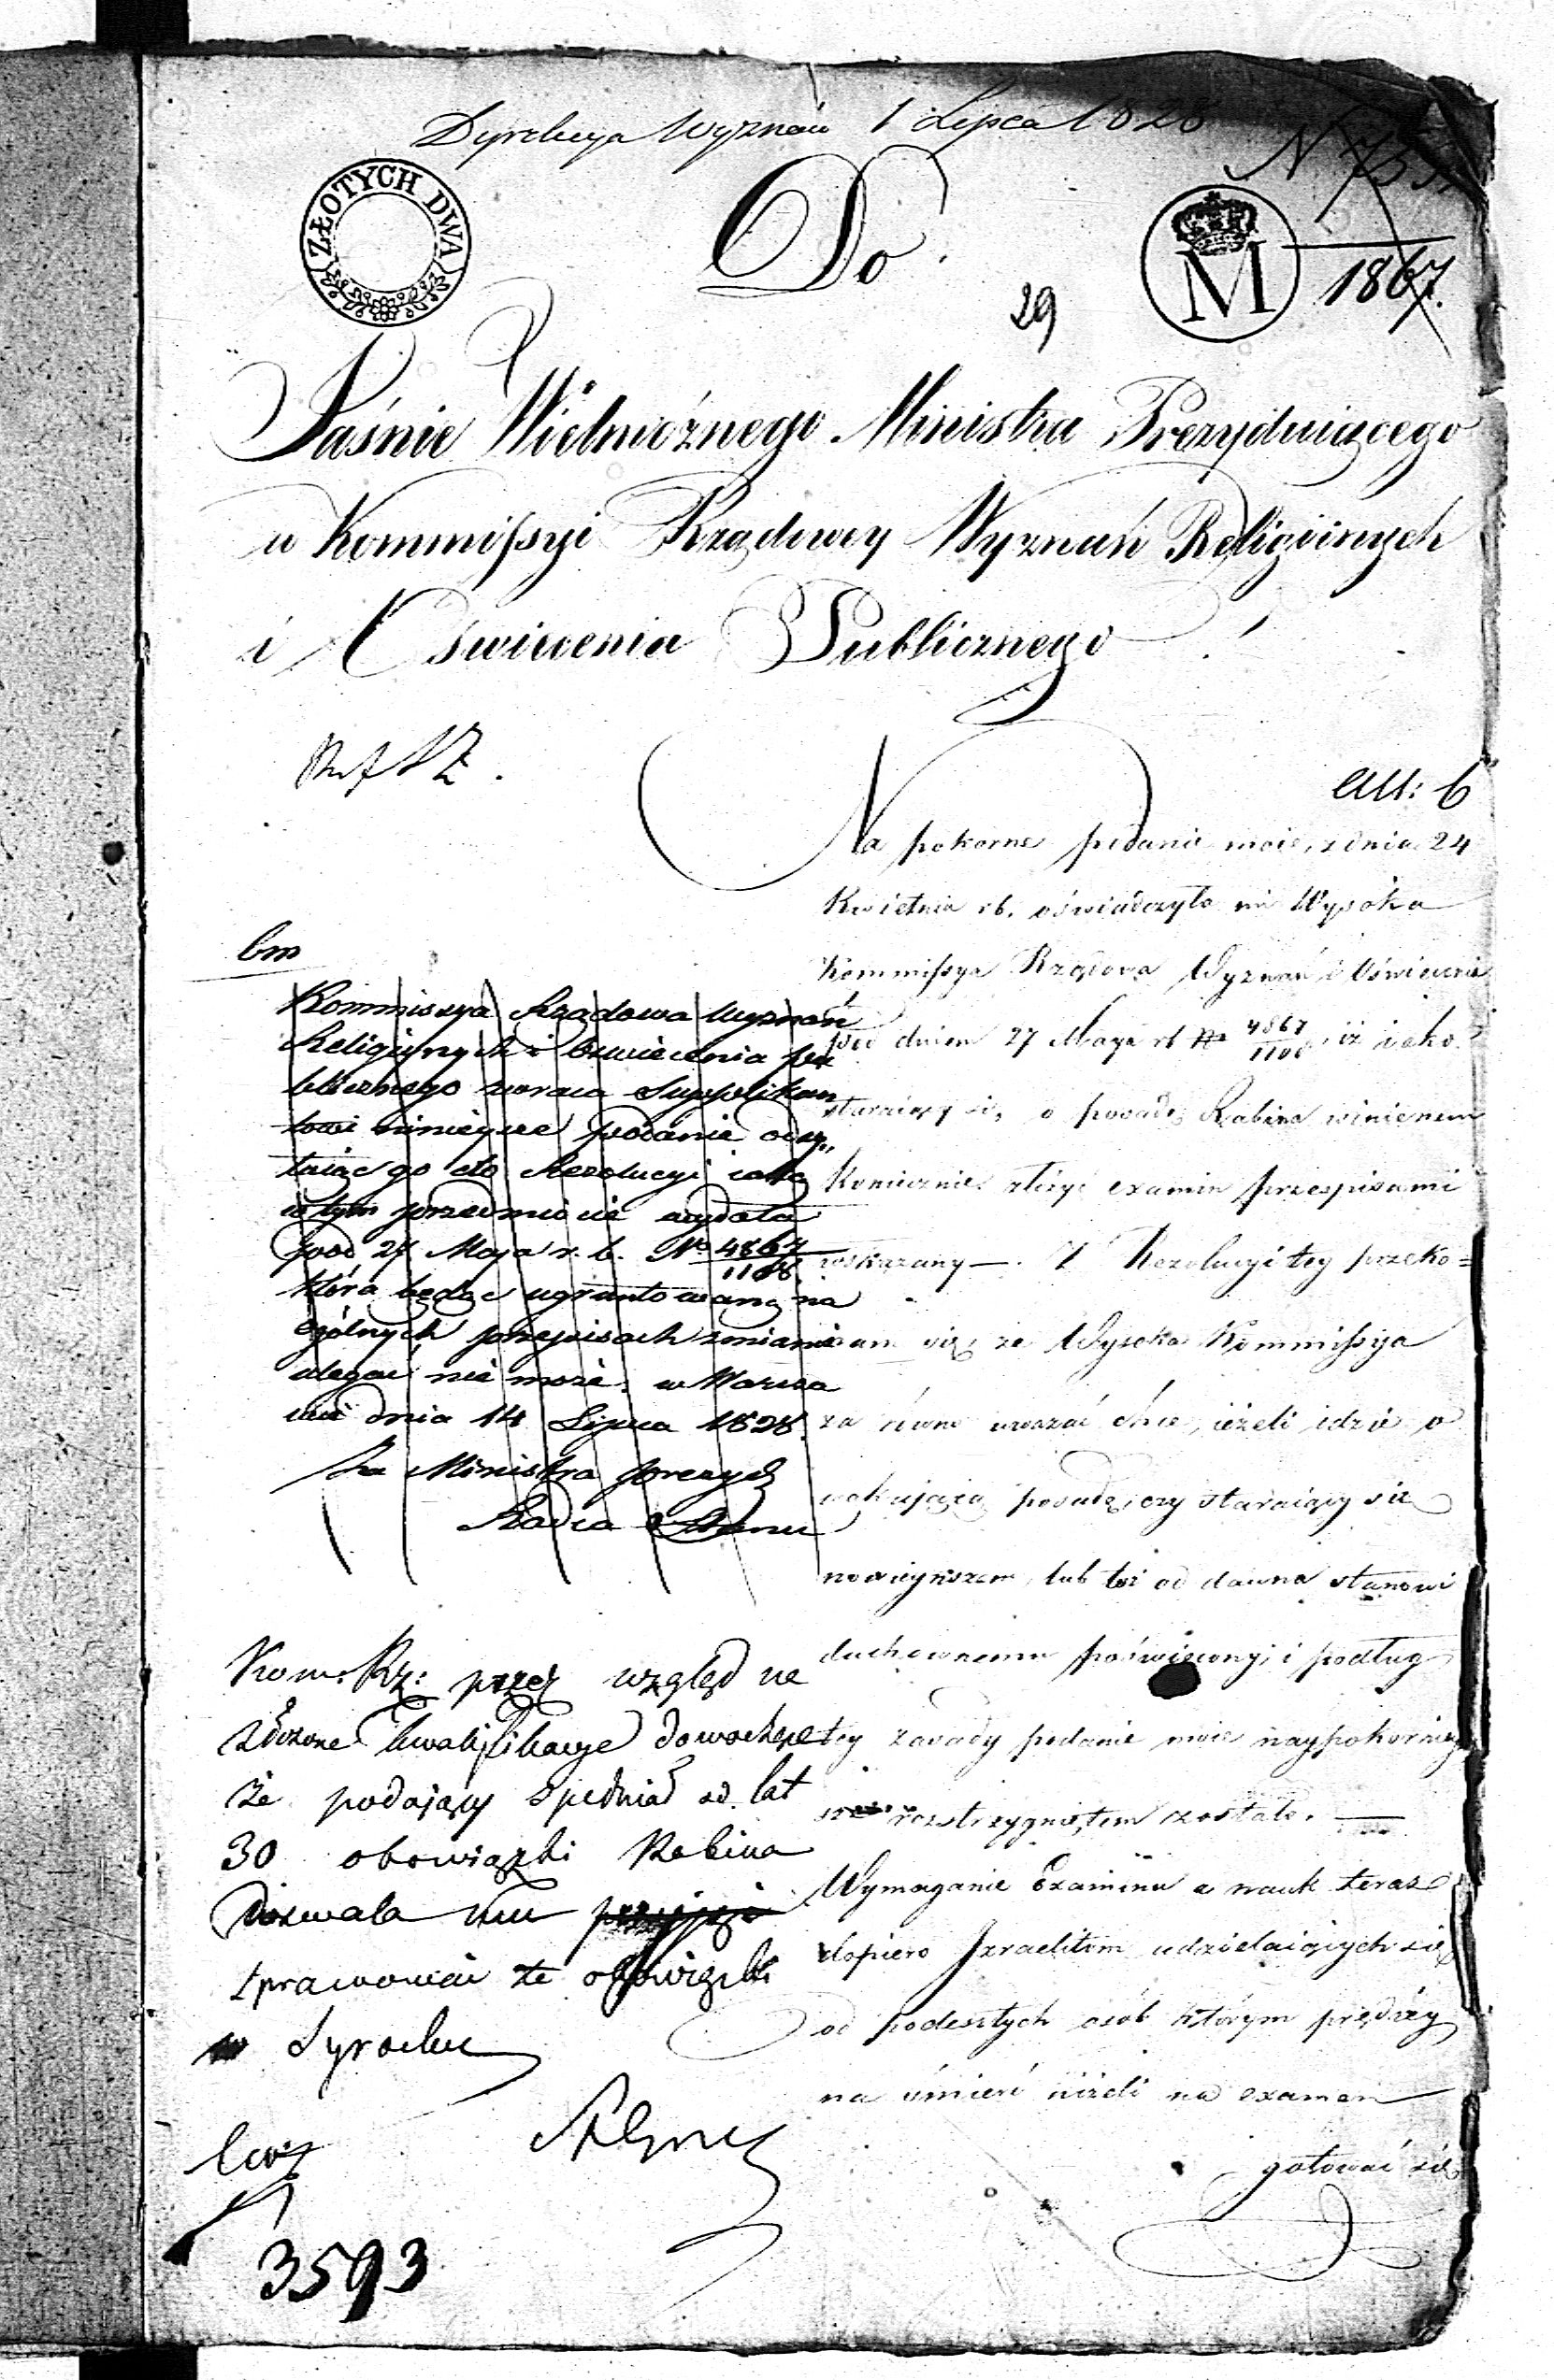 Dyrekcya Wyznań 1 Lipca 1828
N
ZŁOTYCH DWA
Do
M
1867.
29
Jaśnie Wielmożnego Ministra Prezyduiącego
w Kommissyi Rządowey Wyznań Religiinych
i Oświecenia Publicznego
All: 6
Na pokorne podanie moie, z dnia 24
Kwietnia rb. oświadczyła mi Wysoka
Kommissya Rządowa Wyznań i Oświecenia
pod dniem 27 Maya rb No 4867/1108, iż iako
staraiący się o posadę Rabina winienem
koniecznie złożyć examin przepisami
wskazany —. Z Rezolucyi tey przeko=
nałam się, że Wysoka Kommissya
za równo uważać chce, ieżeli idzie o
wakującą posadę, czy staraiący się
nowieyuszem, lub też od dawna stanowi
duchownemu poświęcony, i podług
tey zasady podanie moie naypokorniey
rozstrzygniętem zostało. —
Wymaganie Examinu z nauk teraz
dopiero Izraelitom udzielaiących się
od podeszłych osób którym prędzey
na śmierć niżeli na examen
gotować się
bm
Kommissya Rządowa Wyznań
Religiynych i Oświecenia Pu
blicznego zwraca Supplikan
towi ninieysze podanie odsy„
łaiąc go do Rezolucyi iaką
w tym przedmiocie wydała
pod 27 Maja r. b. No 4867/1108
która będąc ugruntowaną na
ogólnych przepisach zmianie
uledz nie może. w Warsza
wie dnia 14 Lipca 1828.
Za Ministra Prezyd
Radca Stanu
Kom. Rz: przez wzgląd na
złożone kwalifikacye dowodzące
że podający spełniał od lat
30 obowiązki Rabina
Dozwala mu przyjąć
sprawować te obowiązki
w Syrocku
3593